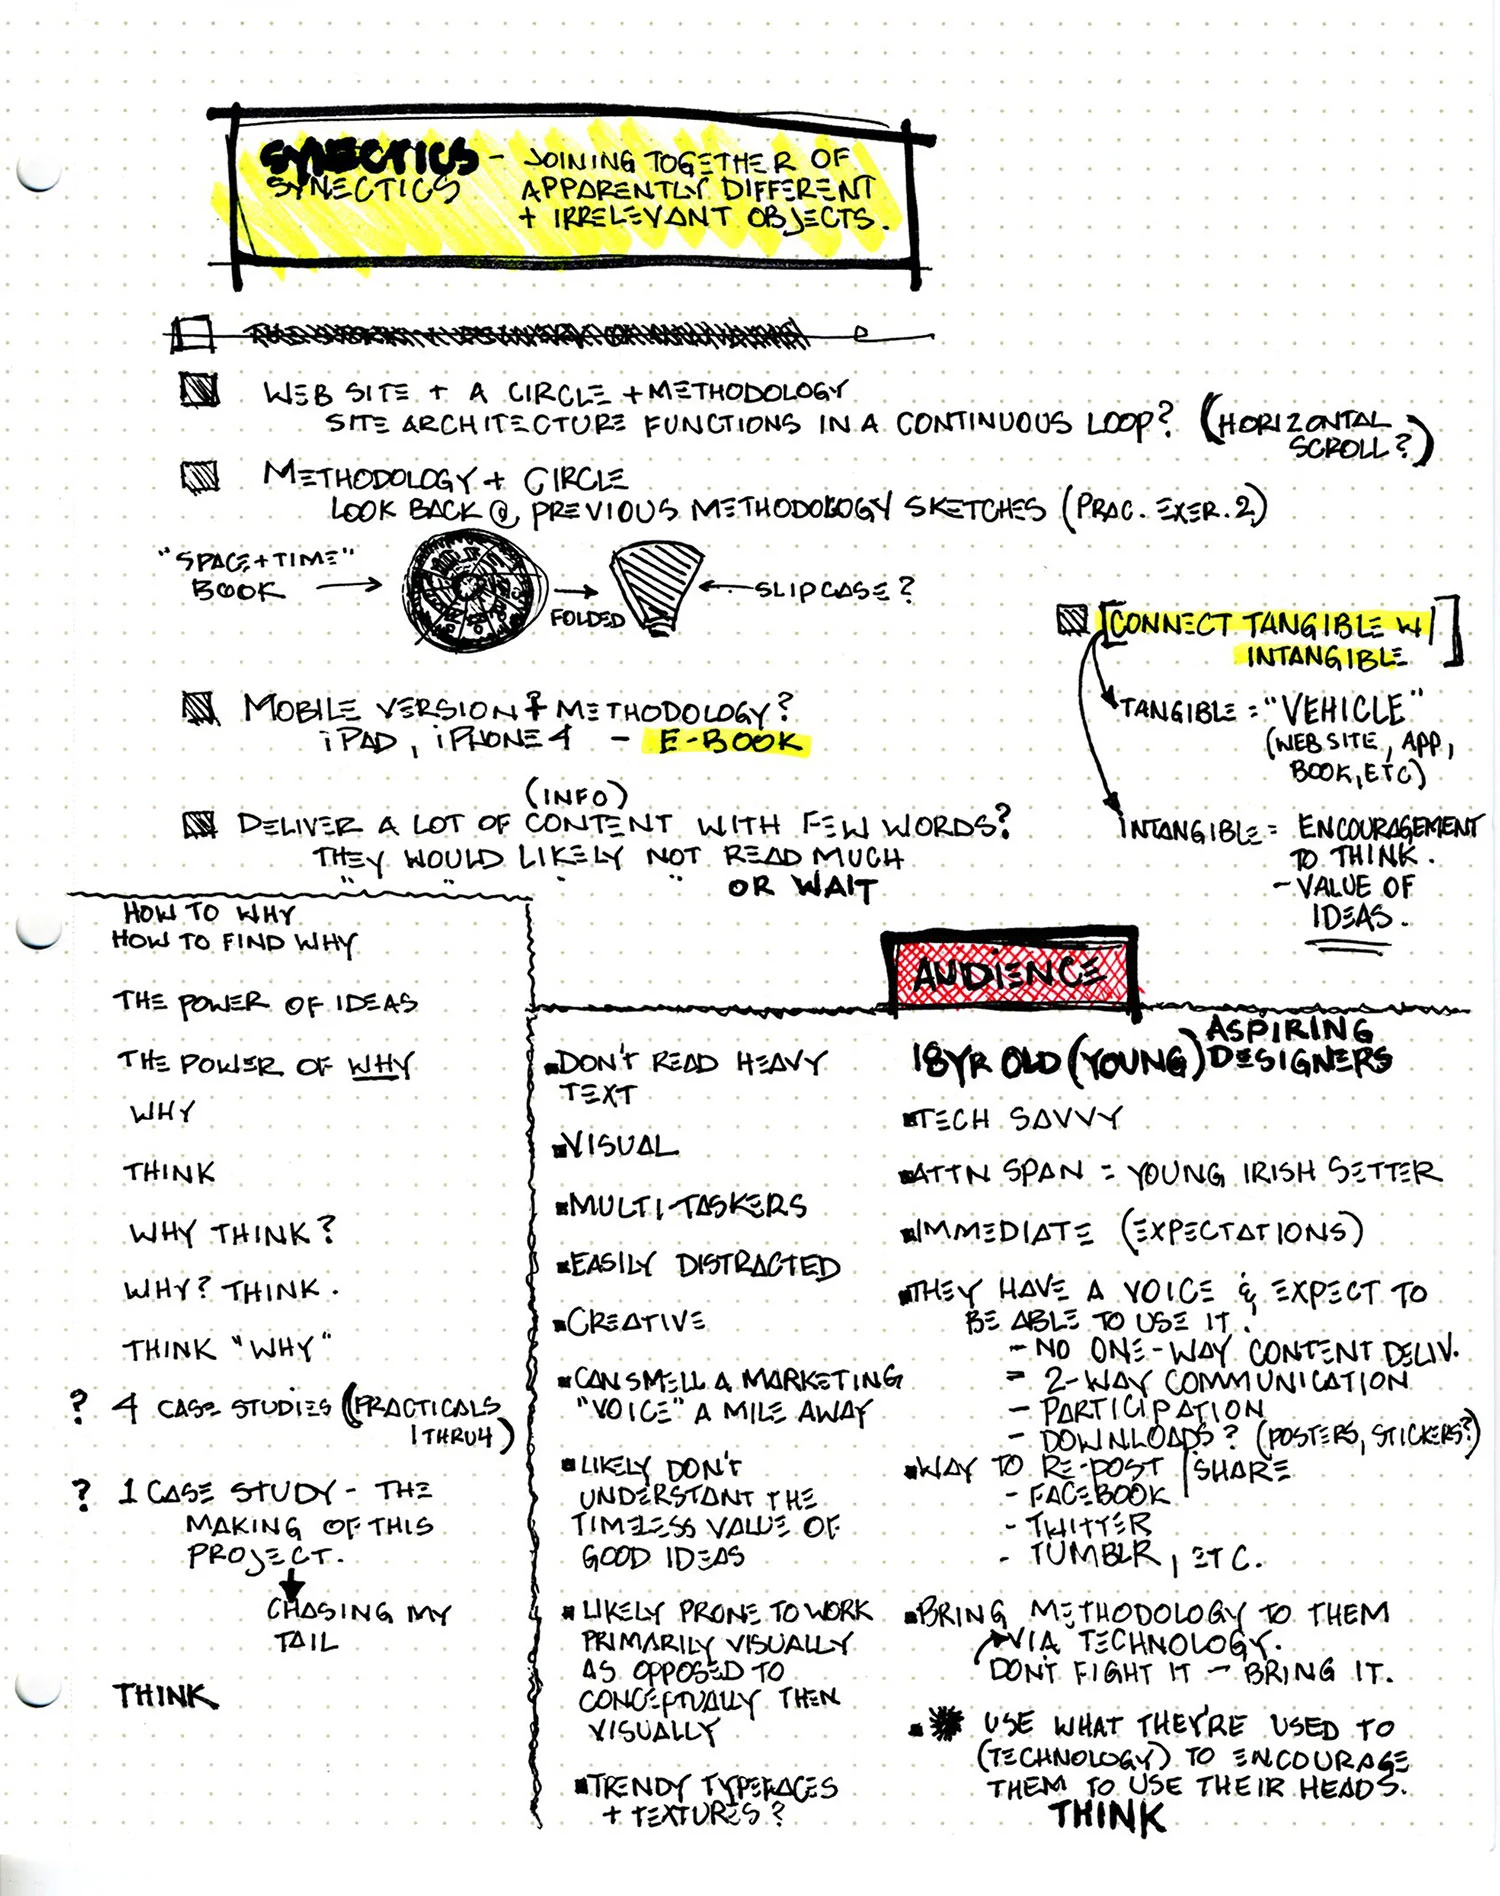 SYNECTICS - JOINING TOGETHER OF
SYNECTICS APPARENTLY DIFFERENT
+ IRRELEVANT OBJECTS.
WEB SITE + A CIRCLE + METHODOLOGY
SITE ARCHITECTURE FUNCTIONS IN A CONTINUOUS LOOP? (HORIZONTAL
SCROLL?)
METHODOLOGY + CIRCLE
LOOK BACK @ PREVIOUS METHODOLOGY SKETCHES (PRAC. EXER. 2)
"SPACE + TIME"
BOOK
FOLDED
SLIPCASE?
[CONNECT TANGIBLE W/
INTANGIBLE]
TANGIBLE = "VEHICLE"
(WEB SITE, APP,
BOOK, ETC)
INTANGIBLE = ENCOURAGEMENT
TO THINK.
- VALUE OF
IDEAS.
MOBILE VERSION + METHODOLOGY?
iPAD, iPHONE 4 - E-BOOK
(INFO)
DELIVER A LOT OF CONTENT WITH FEW WORDS?
THEY WOULD LIKELY NOT READ MUCH
" " " " OR WAIT
HOW TO WHY
HOW TO FIND WHY
THE POWER OF IDEAS
THE POWER OF WHY
WHY
THINK
WHY THINK?
WHY? THINK.
THINK "WHY"
? 4 CASE STUDIES (PRACTICALS
1 THRU 4)
? 1 CASE STUDY - THE
MAKING OF THIS
PROJECT.
CHASING MY
TAIL
THINK
AUDIENCE
DON'T READ HEAVY
TEXT
VISUAL
MULTI-TASKERS
EASILY DISTRACTED
CREATIVE
CAN SMELL A MARKETING
"VOICE" A MILE AWAY
LIKELY DON'T
UNDERSTANT THE
TIMELESS VALUE OF
GOOD IDEAS
LIKELY PRONE TO WORK
PRIMARILY VISUALLY
AS OPPOSED TO
CONCEPTUALLY THEN
VISUALLY
TRENDY TYPEFACES
+ TEXTURES?
18YR OLD (YOUNG) ASPIRING
DESIGNERS
TECH SAVVY
ATTN SPAN = YOUNG IRISH SETTER
IMMEDIATE (EXPECTATIONS)
THEY HAVE A VOICE & EXPECT TO
BE ABLE TO USE IT!
- NO ONE-WAY CONTENT DELIV.
= 2-WAY COMMUNICATION
- PARTICIPATION
- DOWNLOADS? (POSTERS, STICKERS?)
WAY TO RE-POST / SHARE
- FACEBOOK
- TWITTER
- TUMBLR, ETC.
BRING METHODOLOGY TO THEM
VIA TECHNOLOGY.
DON'T FIGHT IT - BRING IT.
USE WHAT THEY'RE USED TO
(TECHNOLOGY) TO ENCOURAGE
THEM TO USE THEIR HEADS.
THINK